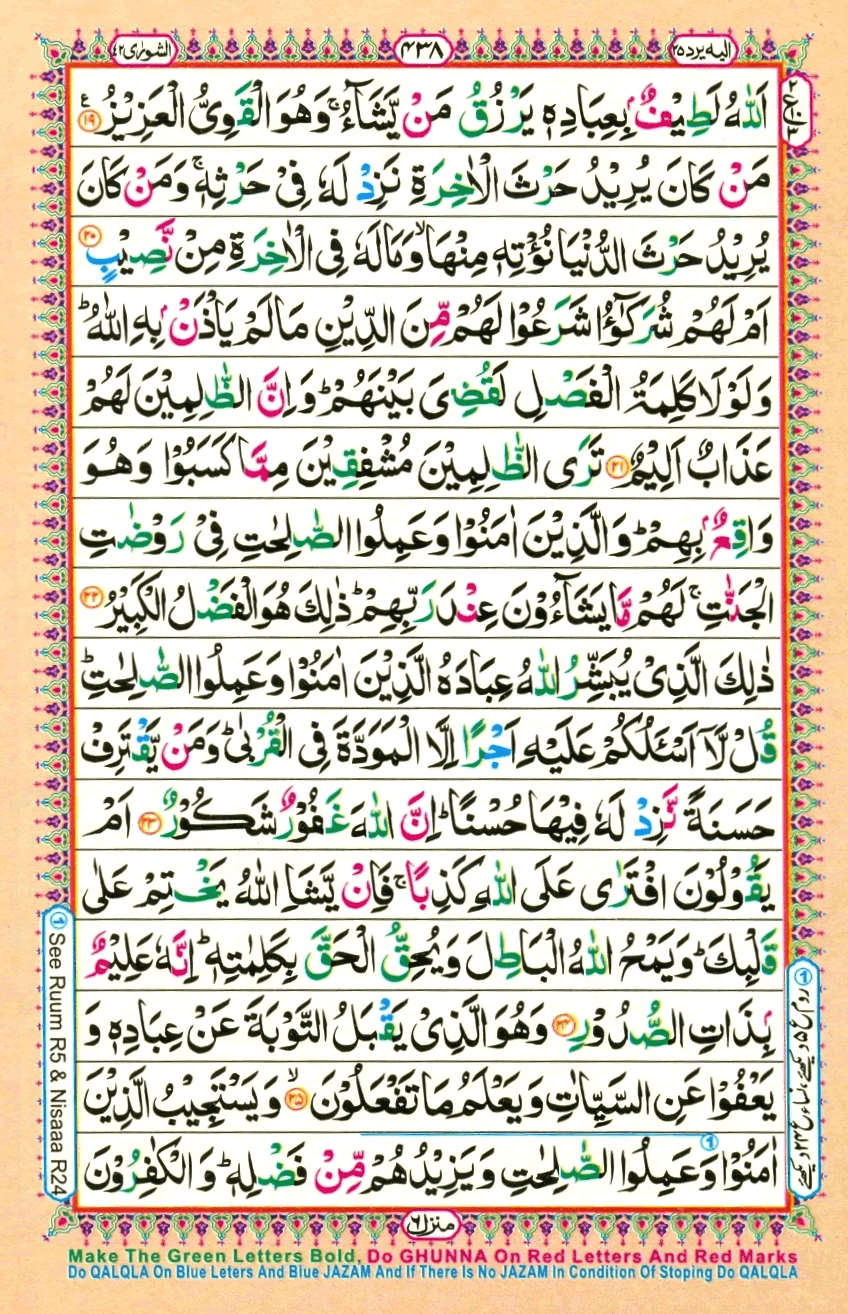 الیه یرد ۲۵
۴۳۸
الشورٰی ۴۲
اَللّٰهُ لَطِیْفٌۢ بِعِبَادِهٖ یَرْزُقُ مَنْ یَّشَآءُ ۚ وَهُوَ الْقَوِیُّ الْعَزِیْزُ ۱۹
مَنْ كَانَ یُرِیْدُ حَرْثَ الْاٰخِرَةِ نَزِدْ لَهٗ فِیْ حَرْثِهٖ ۚ وَمَنْ كَانَ
یُرِیْدُ حَرْثَ الدُّنْیَا نُؤْتِهٖ مِنْهَا ۙ وَمَا لَهٗ فِی الْاٰخِرَةِ مِنْ نَّصِیْبٍ ۲۰
اَمْ لَهُمْ شُرَكٰٓؤُا شَرَعُوْا لَهُمْ مِّنَ الدِّیْنِ مَا لَمْ یَاْذَنْۢ بِهِ اللّٰهُ ؕ
وَلَوْلَا كَلِمَةُ الْفَصْلِ لَقُضِیَ بَیْنَهُمْ ؕ وَاِنَّ الظّٰلِمِیْنَ لَهُمْ
عَذَابٌ اَلِیْمٌ ۲۱ تَرَی الظّٰلِمِیْنَ مُشْفِقِیْنَ مِمَّا كَسَبُوْا وَهُوَ
وَاقِعٌۢ بِهِمْ ؕ وَالَّذِیْنَ اٰمَنُوْا وَعَمِلُوا الصّٰلِحٰتِ فِیْ رَوْضٰتِ
الْجَنّٰتِ ۚ لَهُمْ مَّا یَشَآءُوْنَ عِنْدَ رَبِّهِمْ ؕ ذٰلِكَ هُوَ الْفَضْلُ الْكَبِیْرُ ۲۲
ذٰلِكَ الَّذِیْ یُبَشِّرُ اللّٰهُ عِبَادَهُ الَّذِیْنَ اٰمَنُوْا وَعَمِلُوا الصّٰلِحٰتِ ؕ
قُلْ لَّاۤ اَسْـَٔلُكُمْ عَلَیْهِ اَجْرًا اِلَّا الْمَوَدَّةَ فِی الْقُرْبٰی ؕ وَمَنْ یَّقْتَرِفْ
حَسَنَةً نَّزِدْ لَهٗ فِیْهَا حُسْنًا ؕ اِنَّ اللّٰهَ غَفُوْرٌ شَكُوْرٌ ۲۳ اَمْ
یَقُوْلُوْنَ افْتَرٰی عَلَی اللّٰهِ كَذِبًا ۚ فَاِنْ یَّشَاِ اللّٰهُ یَخْتِمْ عَلٰی
قَلْبِكَ ؕ وَیَمْحُ اللّٰهُ الْبَاطِلَ وَیُحِقُّ الْحَقَّ بِكَلِمٰتِهٖ ؕ اِنَّهٗ عَلِیْمٌۢ
بِذَاتِ الصُّدُوْرِ ۲۴ وَهُوَ الَّذِیْ یَقْبَلُ التَّوْبَةَ عَنْ عِبَادِهٖ وَ
یَعْفُوْا عَنِ السَّیِّاٰتِ وَیَعْلَمُ مَا تَفْعَلُوْنَ ۙ ۲۵ وَیَسْتَجِیْبُ الَّذِیْنَ
اٰمَنُوْا وَعَمِلُوا الصّٰلِحٰتِ وَیَزِیْدُهُمْ مِّنْ فَضْلِهٖ ؕ وَالْكٰفِرُوْنَ
① See Ruum R5 & Nisaaa R24
منزل ۶
Make The Green Letters Bold, Do GHUNNA On Red Letters And Red Marks
Do QALQLA On Blue Leters And Blue JAZAM And If There Is No JAZAM In Condition Of Stoping Do QALQLA